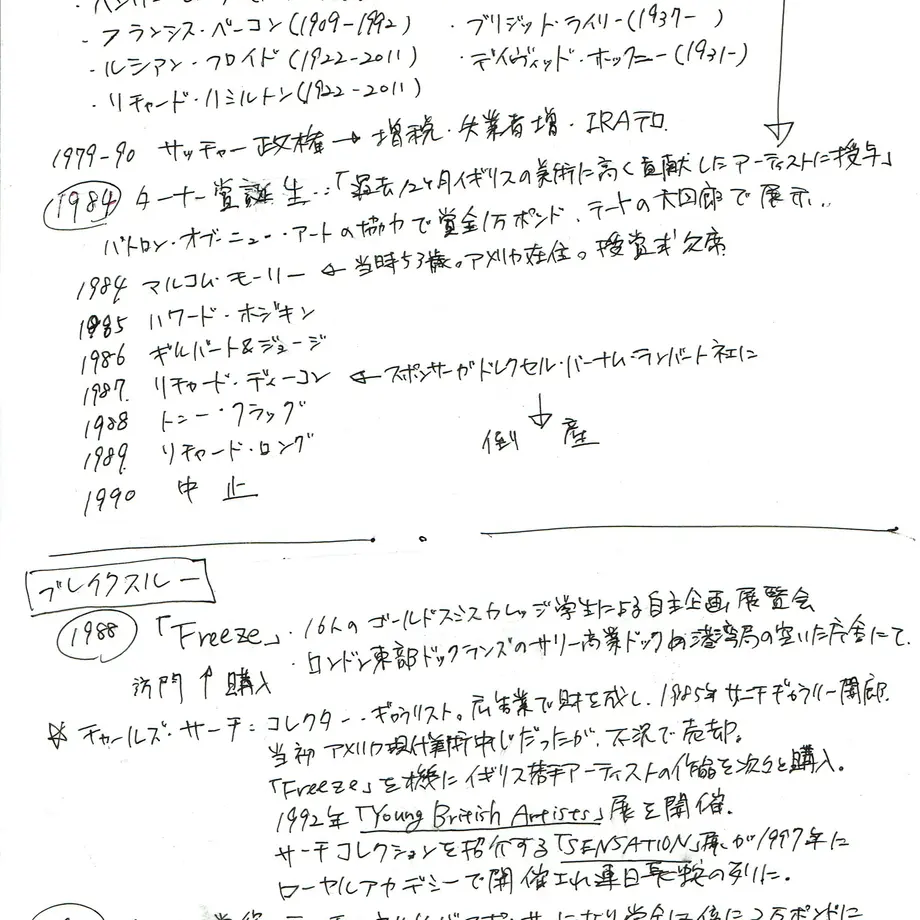 ・フランシス・ベーコン(1909-1992)　・ブリジット・ライリー(1937-　)
・ルシアン・フロイド(1922-2011)　・デイヴィッド・ホックニー(1931-)
・リチャード・ハミルトン(1922-2011)
1979-90 サッチャー政権→増税・失業者増・IRAテロ
1984 ターナー賞誕生…「過去12ヶ月イギリスの美術に高く貢献したアーティストに授与」
パトロン・オブ・ニュー・アートの協力で賞金1万ポンド、テートの大回廊で展示..
1984 マルコム・モーリー ← 当時53歳。アメリカ在住。授賞式欠席
1985 ハワード・ホジキン
1986 ギルバート&ジョージ
1987. リチャード・ディーコン ← スポンサーがドレクセル・バーナム・ランバート社に
1988 トニー・クラッグ
↓
倒産
1989. リチャード・ロング
1990 中止
ブレイクスルー
1988 「Freeze」・16人のゴールドスミスカレッジ学生による自主企画展覧会
・ロンドン東部ドックランズのサリー商業ドック 港湾局の空いた庁舎にて.
訪問↑購入
☆ チャールズ・サーチ：コレクター・ギャラリスト。広告業で財を成し、1985年サーチギャラリー開廊.
当初アメリカ現代美術中心だったが、不況で売却。
「Freeze」を機にイギリス若手アーティストの作品を次々と購入。
1992年「Young British Artists」展を開催.
サーチコレクションを紹介する「SENSATION」展が1997年に
ローヤルアカデミーで開催され連日長蛇の列に.